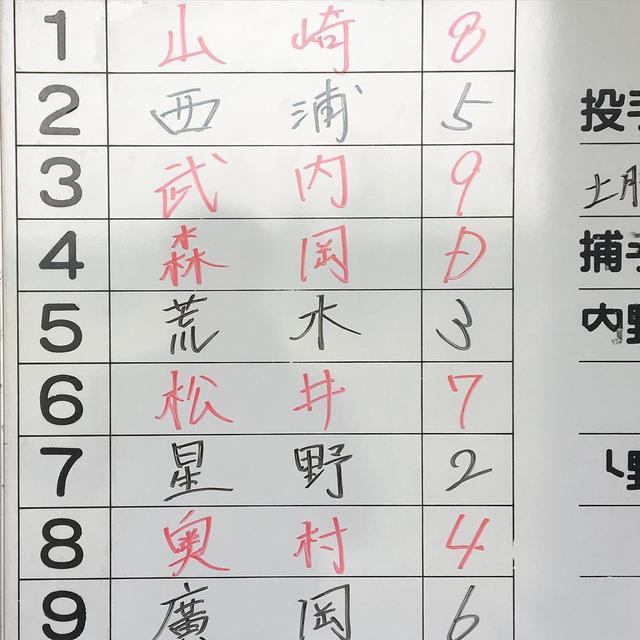 1 山崎 8
2 西浦 5
3 武内 9
4 森岡 D
5 荒木 3
6 松井 7
7 星野 2
8 奥村 4
9 廣岡 6
投手
土肥
捕手
内野
野